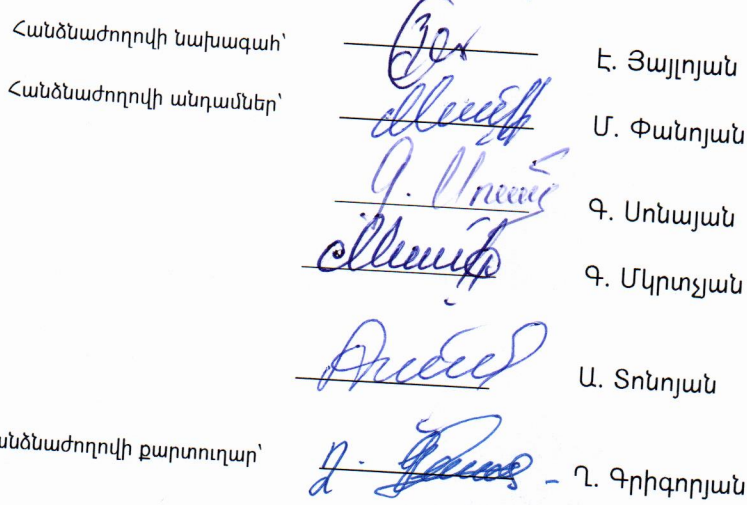 Հանձնաժողովի նախագահ՝ Է. Յայլոյան
Հանձնաժողովի անդամներ՝ Մ. Փանոյան
Գ. Սոնայան
Գ. Մկրտչյան
Ա. Տոնոյան
անձնաժողովի քարտուղար՝ Ղ. Գրիգորյան